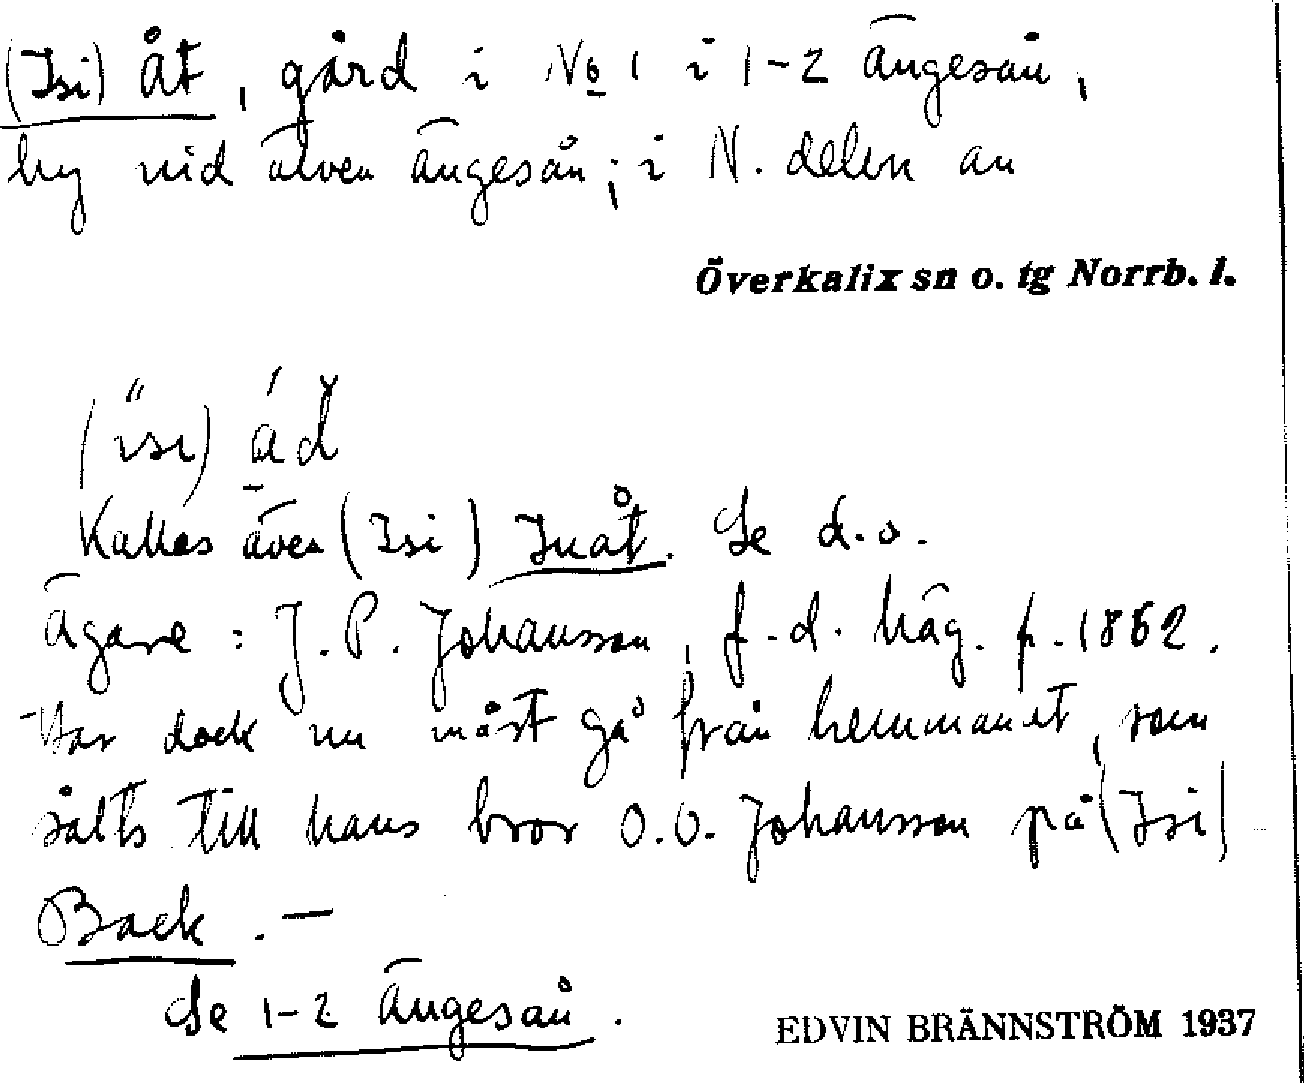 (Isi) åt, gård i No 1 i 1-2 Ängesån,
by vid älven Ängesån; i N. delen av
Överkalix sn o. tg Norrb. l.
(ìsı) ád
Kallas även (Isi) Inåt. Se d.o.
Ägare: J. P. Johansson, f.d. häg. f. 1862.
Har dock nu måst gå från hemmanet, som
sålts till hans bror O.O. Johansson på (Isi)
Back. —
Se 1-2 Ängesån.
EDVIN BRÄNNSTRÖM 1937